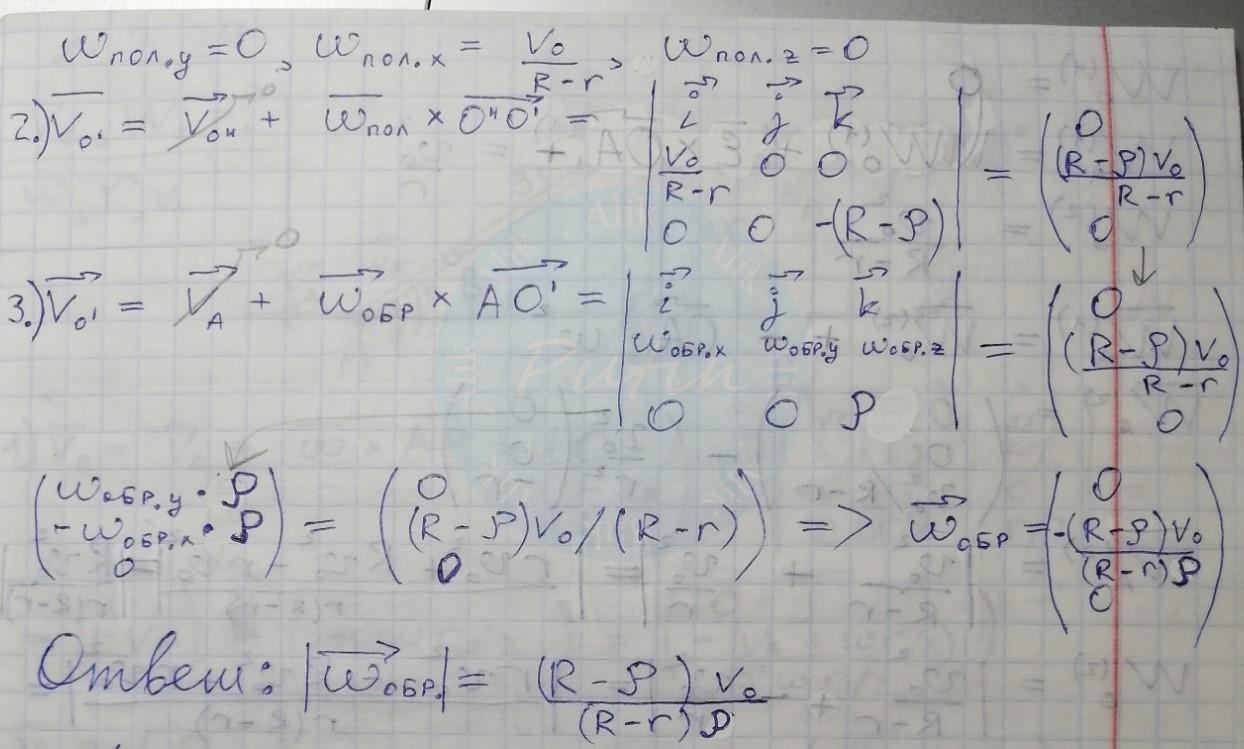 ω пол.y = 0, ω пол.x = V₀/(R-r), ω пол.z = 0
2.) V⃗o' = V⃗o'' →0 + ω пол × O''O' = | i⃗ j⃗ k⃗ ; V₀/(R-r) 0 0 ; 0 0 -(R-ρ) | = ( 0 ; (R-ρ)V₀/(R-r) ; 0 )
3.) V⃗o' = V⃗A →0 + ω⃗ ОБР × AO' = | i⃗ j⃗ k⃗ ; ωОБР.x ωОБР.y ωОБР.z ; 0 0 ρ | = ( 0 ; (R-ρ)V₀/(R-r) ; 0 )
( ωОБР.y · ρ ; -ωОБР.x · ρ ; 0 ) = ( 0 ; (R-ρ)V₀/(R-r) ; 0 ) => ω⃗ ОБР = ( 0 ; -(R-ρ)V₀/((R-r)ρ) ; 0 )
Ответ: |ω⃗ ОБР.| = (R-ρ)V₀/((R-r)ρ)